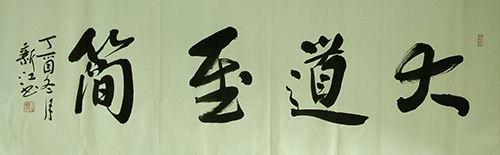 大道至简
丁酉冬月
新江书